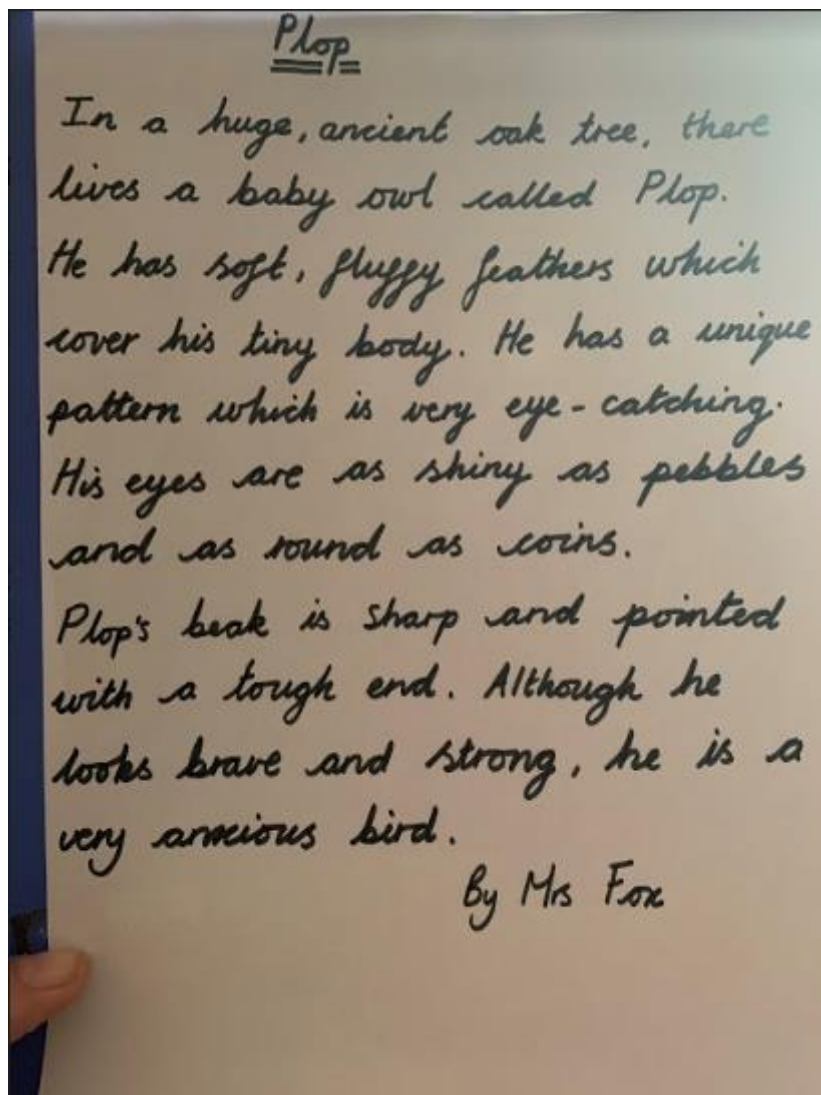 Plop
In a huge, ancient oak tree, there
lives a baby owl called Plop.
He has soft, fluffy feathers which
cover his tiny body. He has a unique
pattern which is very eye-catching.
His eyes are as shiny as pebbles
and as round as coins.
Plop's beak is sharp and pointed
with a tough end. Although he
looks brave and strong, he is a
very anxious bird.
By Mrs Fox